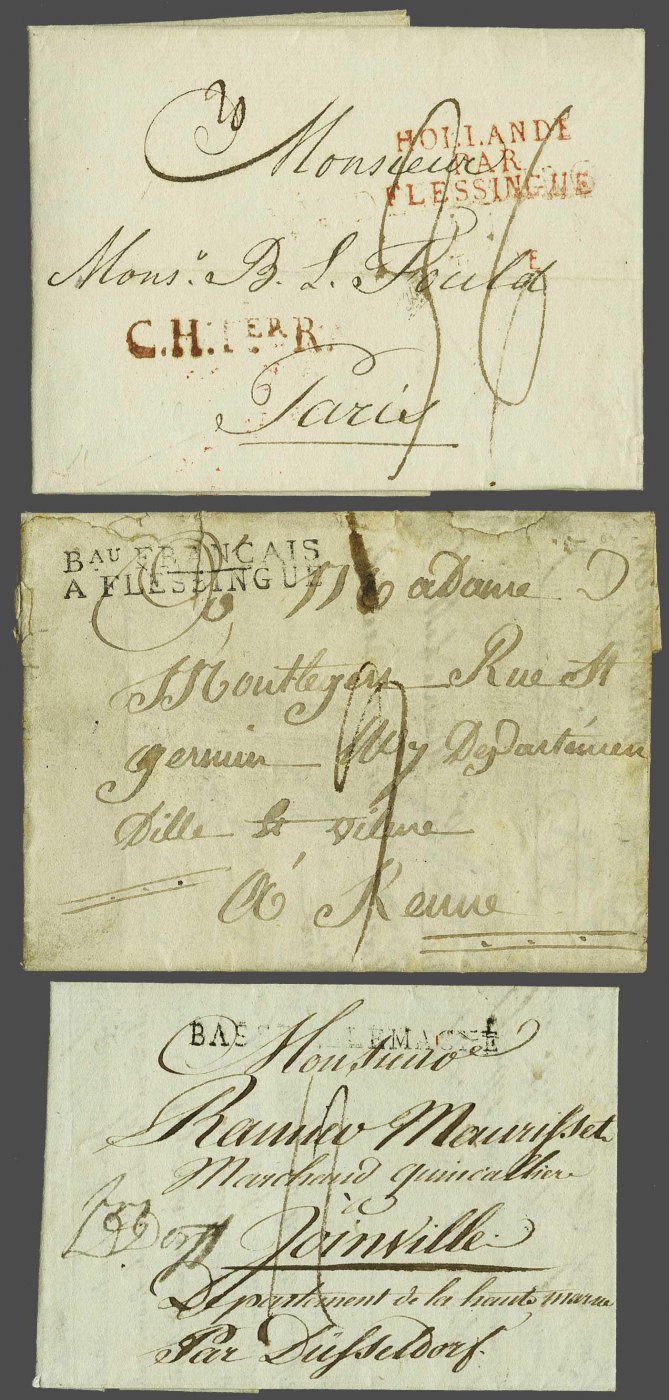 HOLLANDE
PAR
FLESSINGUE
Monsieur
Mons.r B. L. Fould
E
C.H.1ER R.
Paris
BAU FRANCAIS
A FLESSINGUE
Madame
Montlegery Rue St
germin Départémen
Dille et vilene
A Renne
BASSE ALLEMAGNE
Monsieur
Maurisset
Marchand quincallier
à
Joinville
Département de la haute marne
Par Düsseldorf